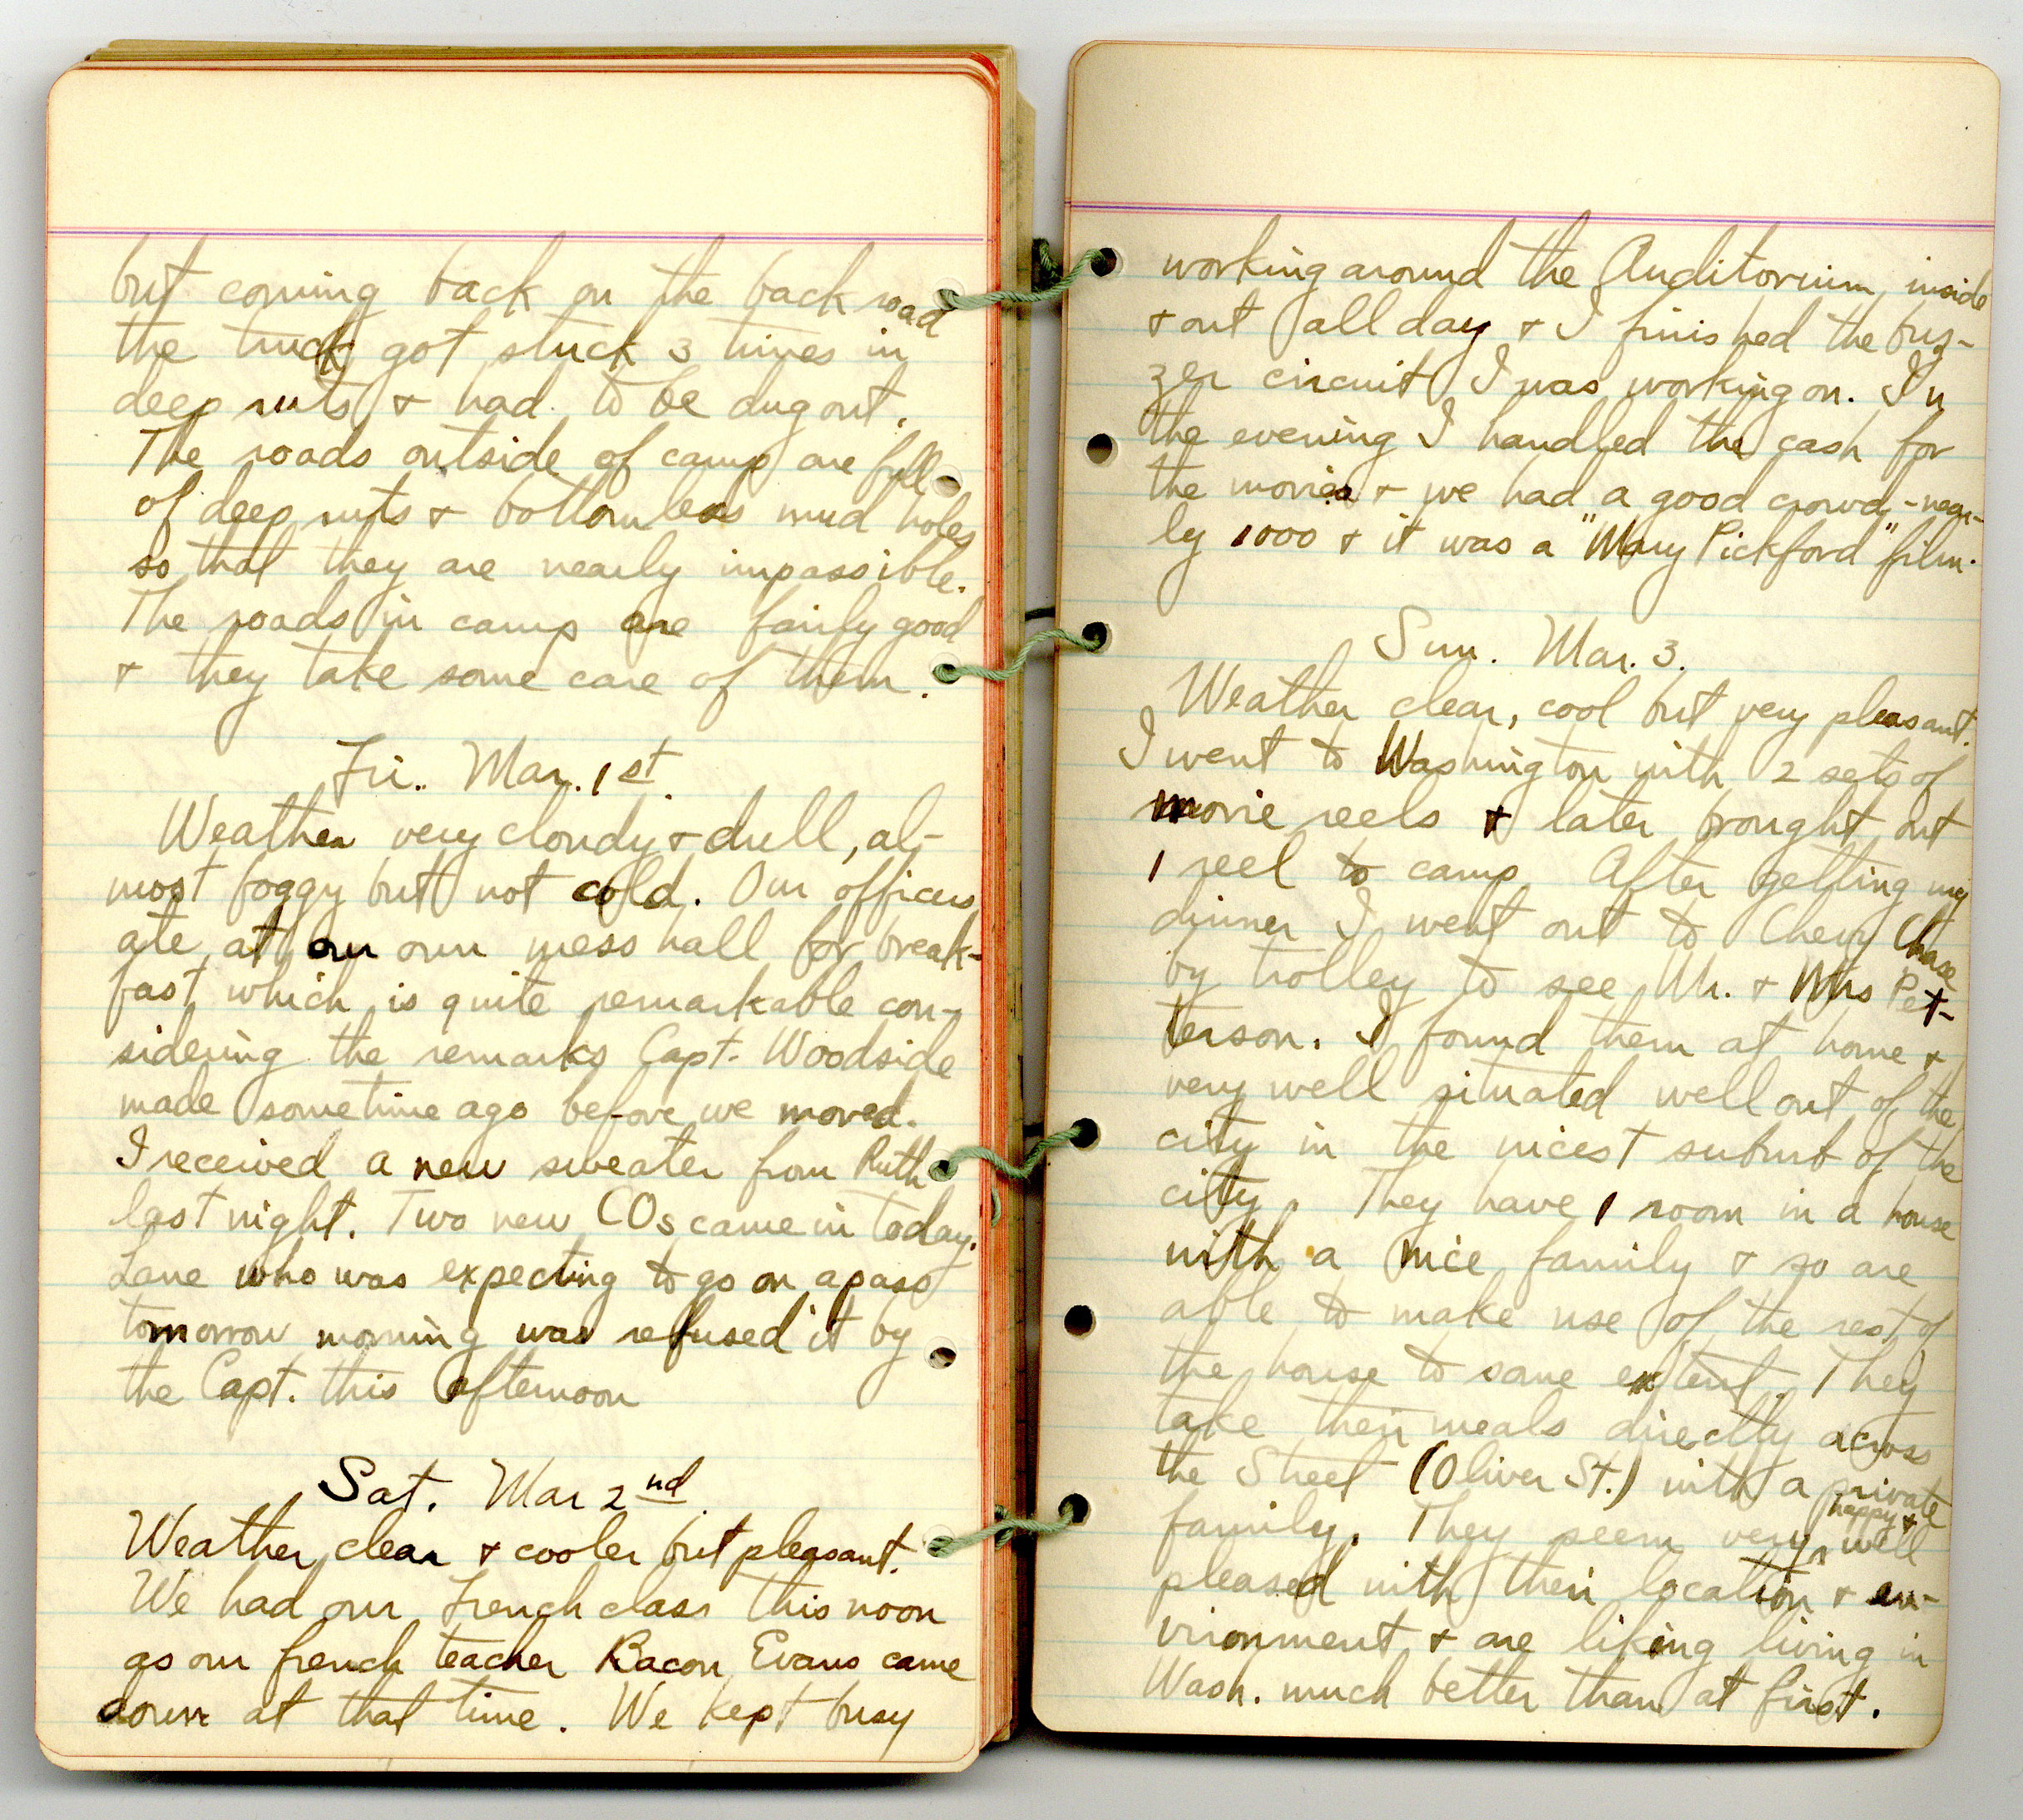 but coming back on the back road
the truck got stuck 3 times in
deep ruts & had to be dug out.
The roads outside of camp are full
of deep ruts & bottomless mud holes
so that they are nearly impassible.
The roads in camp are fairly good
& they take some care of them.
Fri. Mar. 1st.
Weather very cloudy & dull, al-
most foggy but not cold. Our officers
ate at our own mess hall for break-
fast which is quite remarkable con-
sidering the remarks Capt. Woodside
made sometime ago before we moved.
I received a new sweater from Ruth
last night. Two new COs came in today.
Lane who was expecting to go on a pass
tomorrow morning was refused it by
the Capt. this afternoon
Sat. Mar 2nd.
Weather clear & cooler but pleasant.
We had our French class this noon
as our french teacher Bacon Evans came
down at that time. We kept busy
working around the Auditorium, inside
& out all day & I finished the buz-
zer circuit I was working on. In
the evening I handled the cash for
the movies & we had a good crowd - near-
ly 1000 & it was a "Mary Pickford" film.
Sun. Mar. 3.
Weather clear, cool but very pleasant.
I went to Washington with 2 sets of
movie reels & later brought out
1 reel to camp After getting my
dinner I went out to Chevy Chase
by trolley to see Mr. & Mrs Pet-
terson. I found them at home &
very well situated well out of the
city in the nicest suburb of the
city. They have 1 room in a house
with a nice family & so are
able to make use of the rest of
the house to some extent. They
take their meals directly across
the Street (Oliver St.) with a private
family. They seem very happy & well
pleased with their location & en-
vironment & are liking living in
Wash. much better than at first.